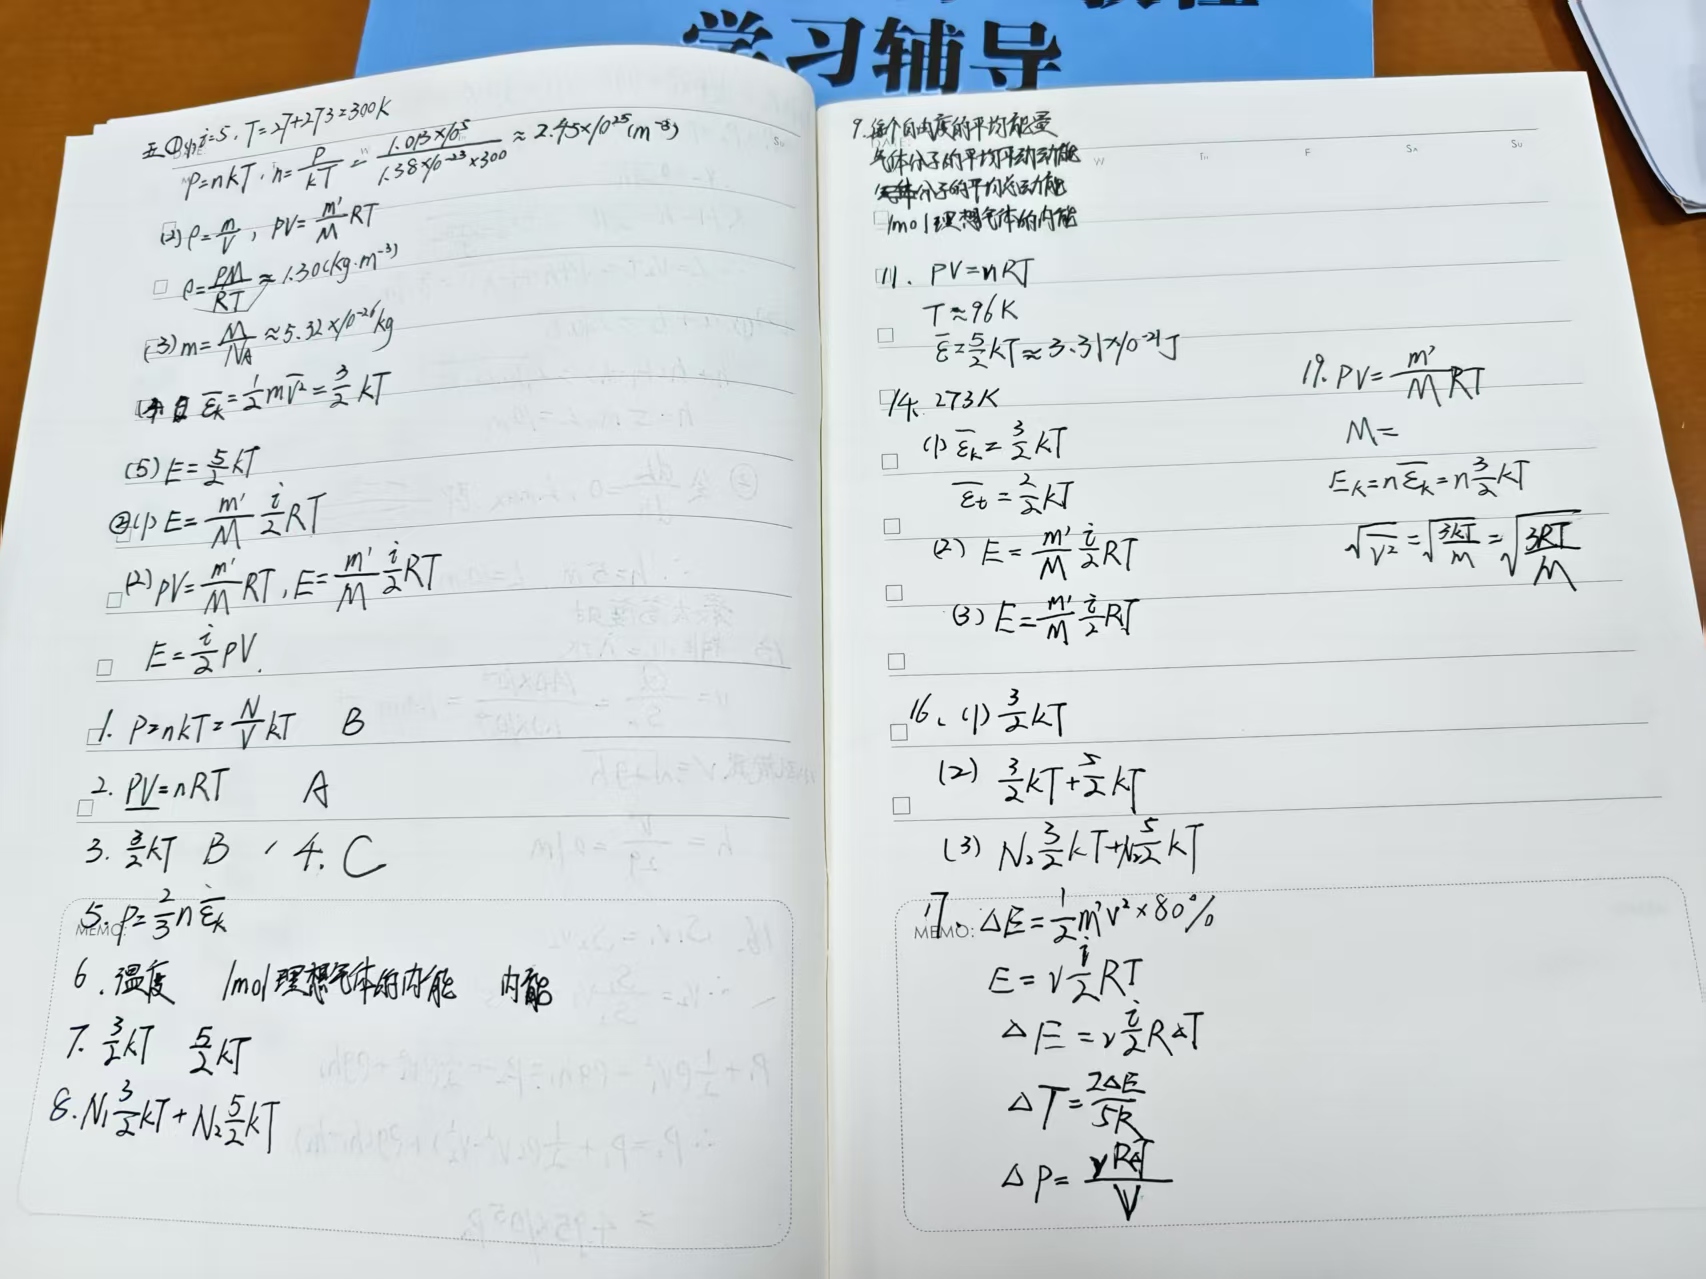 学习辅导
五①(1) i=5, T=27+273=300K
P=nkT, n=P/kT=1.013×10⁵/1.38×10⁻²³×300≈2.45×10²⁵(m⁻³)
(2) ρ=m/V, PV=m'/M RT
ρ=PM/RT≈1.30(kg·m⁻³)
(3) m=M/N_A≈5.32×10⁻²⁶kg
(4) ε̄ₖ=1/2 mv̄²=3/2 kT
(5) E=5/2 kT
②(1) E=m'/M i/2 RT
(2) PV=m'/M RT, E=m'/M i/2 RT
E=i/2 PV.
1. P=nkT=N/V kT B
2. PV=nRT A
3. 3/2 kT B , 4. C
5. P=2/3 n ε̄ₖ
MEMO:
6. 温度 1mol理想气体的内能 内能
7. 3/2 kT 5/2 kT
8. N₁ 3/2 kT+N₂ 5/2 kT
9. 每个自由度的平均能量
气体分子的平均平动动能
气体分子的平均总动能
1mol理想气体的内能
W F Sa Su
11. PV=nRT
T≈96K
ε̄=5/2 kT≈3.31×10⁻²¹J
14. 273K
(1) ε̄ₖ=3/2 kT
ε̄t=2/2 kT
(2) E=m'/M i/2 RT
(3) E=m'/M i/2 RT
16. (1) 3/2 kT
(2) 3/2 kT+5/2 kT
(3) N₁ 3/2 kT+N₂ 5/2 kT
17. ΔE=1/2 m'v²×80%
MEMO:
E=ν i/2 RT
ΔE=ν i/2 RΔT
ΔT=2ΔE/5R
ΔP=νRΔT/V
19. PV=m'/M RT
M=
Eₖ=n ε̄ₖ=n 3/2 kT
√v̄²=√3kT/m=√3RT/M